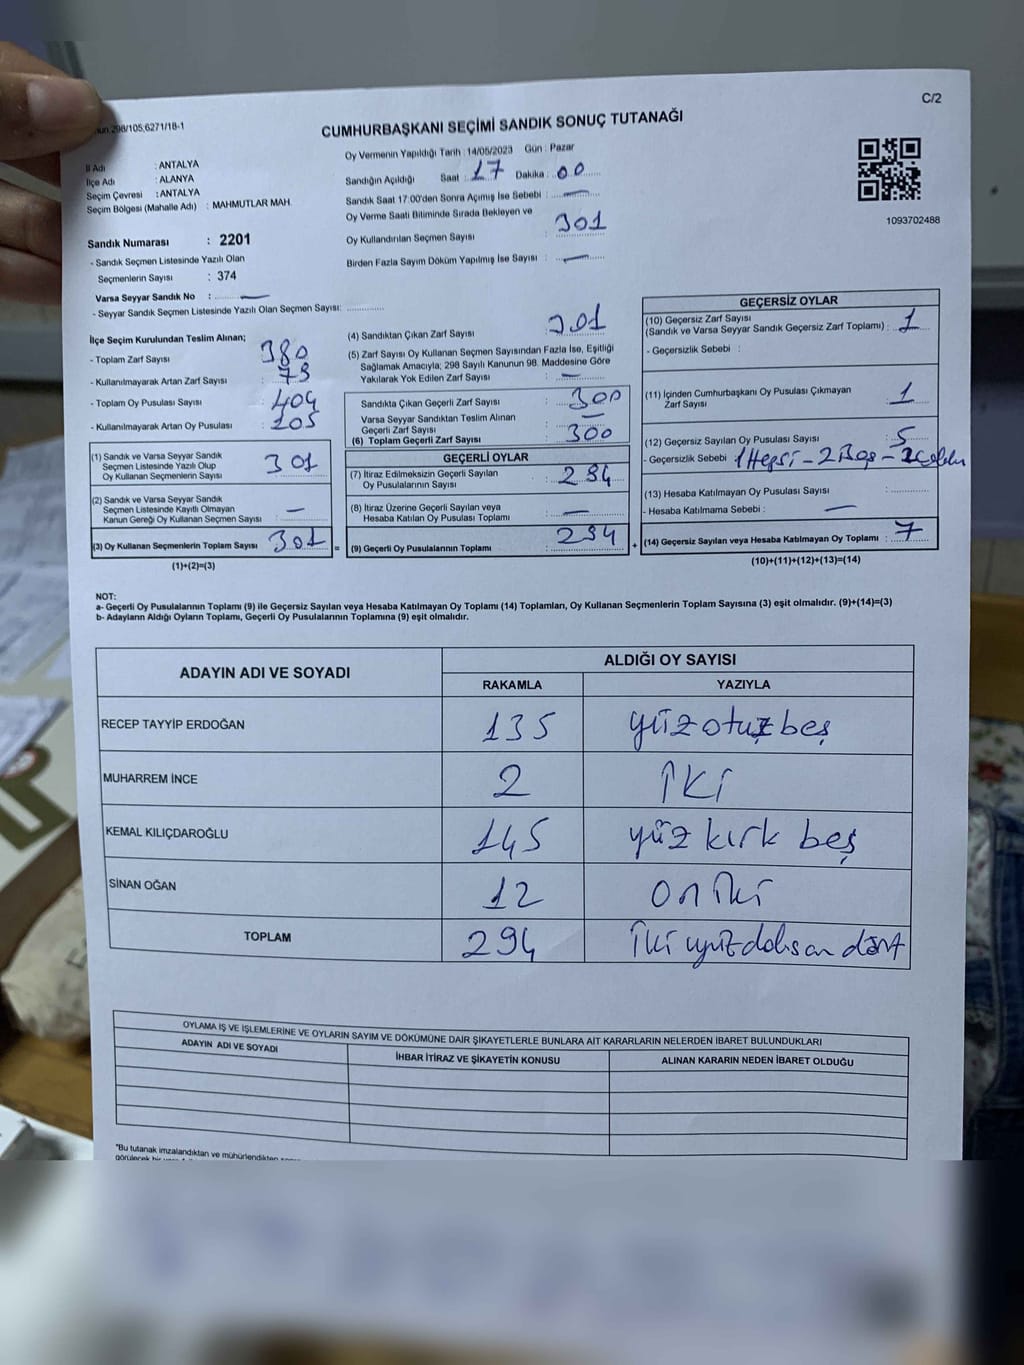 C/2
298/105;6271/18-1
CUMHURBAŞKANI SEÇİMİ SANDIK SONUÇ TUTANAĞI
İl Adı : ANTALYA
İlçe Adı : ALANYA
Seçim Çevresi : ANTALYA
Seçim Bölgesi (Mahalle Adı) : MAHMUTLAR MAH.
Sandık Numarası : 2201
- Sandık Seçmen Listesinde Yazılı Olan
Seçmenlerin Sayısı : 374
Varsa Seyyar Sandık No :
- Seyyar Sandık Seçmen Listesinde Yazılı Olan Seçmen Sayısı:
Oy Vermenin Yapıldığı Tarih : 14/05/2023 Gün : Pazar
Sandığın Açıldığı Saat : 17 Dakika : 00
Sandık Saat 17:00'den Sonra Açımış İse Sebebi : —
Oy Verme Saati Bitiminde Sırada Bekleyen ve
Oy Kullandırılan Seçmen Sayısı : 301
Birden Fazla Sayım Döküm Yapılmış İse Sayısı : —
1093702488
İlçe Seçim Kurulundan Teslim Alınan;
- Toplam Zarf Sayısı : 380
- Kullanılmayarak Artan Zarf Sayısı :
- Toplam Oy Pusulası Sayısı : 404
- Kullanılmayarak Artan Oy Pusulası :
(1) Sandık ve Varsa Seyyar Sandık
Seçmen Listesinde Yazılı Olup
Oy Kullanan Seçmenlerin Sayısı : 301
(2) Sandık ve Varsa Seyyar Sandık
Seçmen Listesinde Kayıtlı Olmayan
Kanun Gereği Oy Kullanan Seçmen Sayısı : —
(3) Oy Kullanan Seçmenlerin Toplam Sayısı : 301 =
(1)+(2)=(3)
(4) Sandıktan Çıkan Zarf Sayısı : 301
(5) Zarf Sayısı Oy Kullanan Seçmen Sayısından Fazla İse, Eşitliği
Sağlamak Amacıyla; 298 Sayılı Kanunun 98. Maddesine Göre
Yakılarak Yok Edilen Zarf Sayısı : —
Sandıkta Çıkan Geçerli Zarf Sayısı : 300
Varsa Seyyar Sandıktan Teslim Alınan
Geçerli Zarf Sayısı : —
(6) Toplam Geçerli Zarf Sayısı : 300
GEÇERLİ OYLAR
(7) İtiraz Edilmeksizin Geçerli Sayılan
Oy Pusulalarının Sayısı : 294
(8) İtiraz Üzerine Geçerli Sayılan veya
Hesaba Katılan Oy Pusulası Toplamı : —
(9) Geçerli Oy Pusulalarının Toplamı : 294 +
GEÇERSİZ OYLAR
(10) Geçersiz Zarf Sayısı
(Sandık ve Varsa Seyyar Sandık Geçersiz Zarf Toplamı) : 1
- Geçersizlik Sebebi :
(11) İçinden Cumhurbaşkanı Oy Pusulası Çıkmayan
Zarf Sayısı : 1
(12) Geçersiz Sayılan Oy Pusulası Sayısı : 5
- Geçersizlik Sebebi : 1 Hepsi - 2 Boş -
(13) Hesaba Katılmayan Oy Pusulası Sayısı :
- Hesaba Katılmama Sebebi : —
(14) Geçersiz Sayılan veya Hesaba Katılmayan Oy Toplamı : 7
(10)+(11)+(12)+(13)=(14)
NOT:
a- Geçerli Oy Pusulalarının Toplamı (9) ile Geçersiz Sayılan veya Hesaba Katılmayan Oy Toplamı (14) Toplamları, Oy Kullanan Seçmenlerin Toplam Sayısına (3) eşit olmalıdır. (9)+(14)=(3)
b- Adayların Aldığı Oyların Toplamı, Geçerli Oy Pusulalarının Toplamına (9) eşit olmalıdır.
ADAYIN ADI VE SOYADI ALDIĞI OY SAYISI
RAKAMLA YAZIYLA
RECEP TAYYİP ERDOĞAN 135 yüz otuz beş
MUHARREM İNCE 2 İKİ
KEMAL KILIÇDAROĞLU 145 yüz kırk beş
SİNAN OĞAN 12 on iki
TOPLAM 294 İki yüz doksan dört
OYLAMA İŞ VE İŞLEMLERİNE VE OYLARIN SAYIM VE DÖKÜMÜNE DAİR ŞİKAYETLERLE BUNLARA AİT KARARLARIN NELERDEN İBARET BULUNDUKLARI
ADAYIN ADI VE SOYADI İHBAR İTİRAZ VE ŞİKAYETİN KONUSU ALINAN KARARIN NEDEN İBARET OLDUĞU
"Bu tutanak imzalandıktan ve mühürlendikten